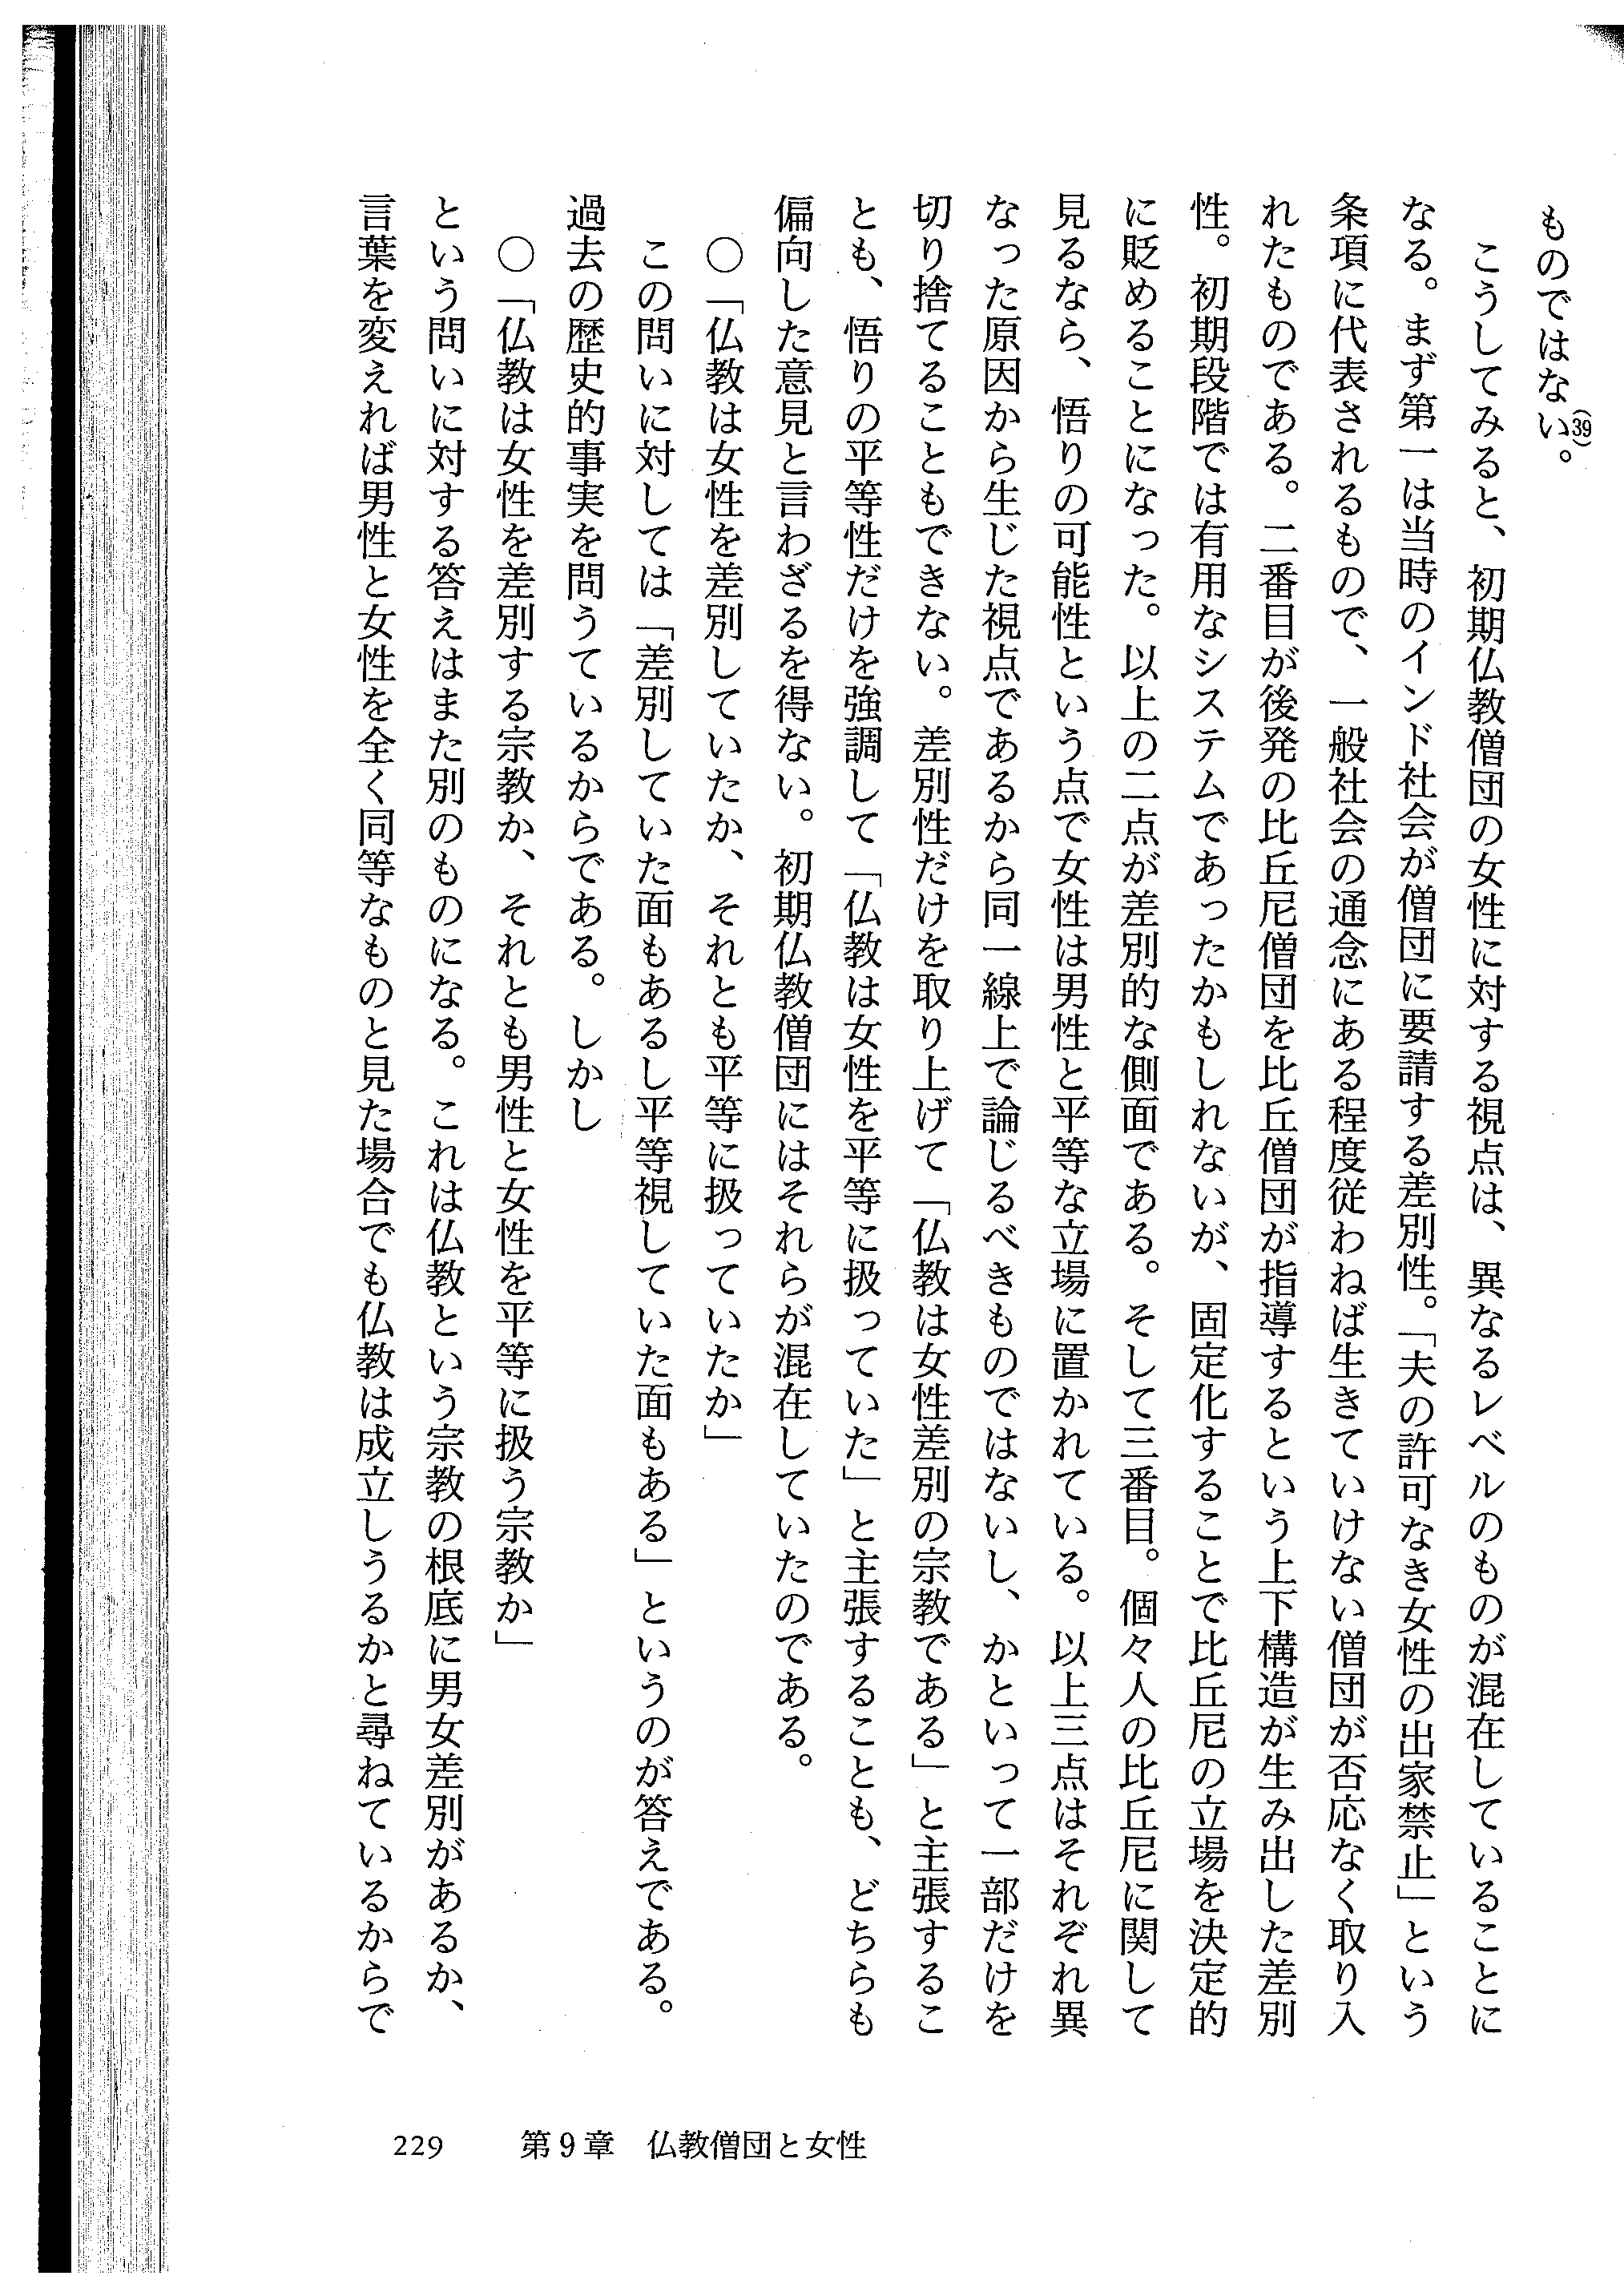 ものではない(39)。
　こうしてみると、初期仏教僧団の女性に対する視点は、異なるレベルのものが混在していることに
なる。まず第一は当時のインド社会が僧団に要請する差別性。「夫の許可なき女性の出家禁止」という
条項に代表されるもので、一般社会の通念にある程度従わねば生きていけない僧団が否応なく取り入
れたものである。二番目が後発の比丘尼僧団を比丘僧団が指導するという上下構造が生み出した差別
性。初期段階では有用なシステムであったかもしれないが、固定化することで比丘尼の立場を決定的
に貶めることになった。以上の二点が差別的な側面である。そして三番目。個々人の比丘尼に関して
見るなら、悟りの可能性という点で女性は男性と平等な立場に置かれている。以上三点はそれぞれ異
なった原因から生じた視点であるから同一線上で論じるべきものではないし、かといって一部だけを
切り捨てることもできない。差別性だけを取り上げて「仏教は女性差別の宗教である」と主張するこ
とも、悟りの平等性だけを強調して「仏教は女性を平等に扱っていた」と主張することも、どちらも
偏向した意見と言わざるを得ない。初期仏教僧団にはそれらが混在していたのである。
　○「仏教は女性を差別していたか、それとも平等に扱っていたか」
　この問いに対しては「差別していた面もあるし平等視していた面もある」というのが答えである。
過去の歴史的事実を問うているからである。しかし
　○「仏教は女性を差別する宗教か、それとも男性と女性を平等に扱う宗教か」
という問いに対する答えはまた別のものになる。これは仏教という宗教の根底に男女差別があるか、
言葉を変えれば男性と女性を全く同等なものと見た場合でも仏教は成立しうるかと尋ねているからで
229　第9章　仏教僧団と女性